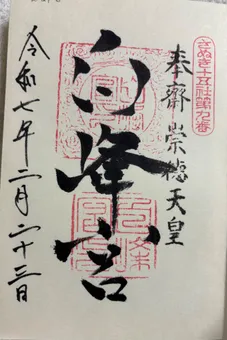 さぬき十五社第九番
奉齋 崇德天皇
白峰宮
令和七年二月二十三日